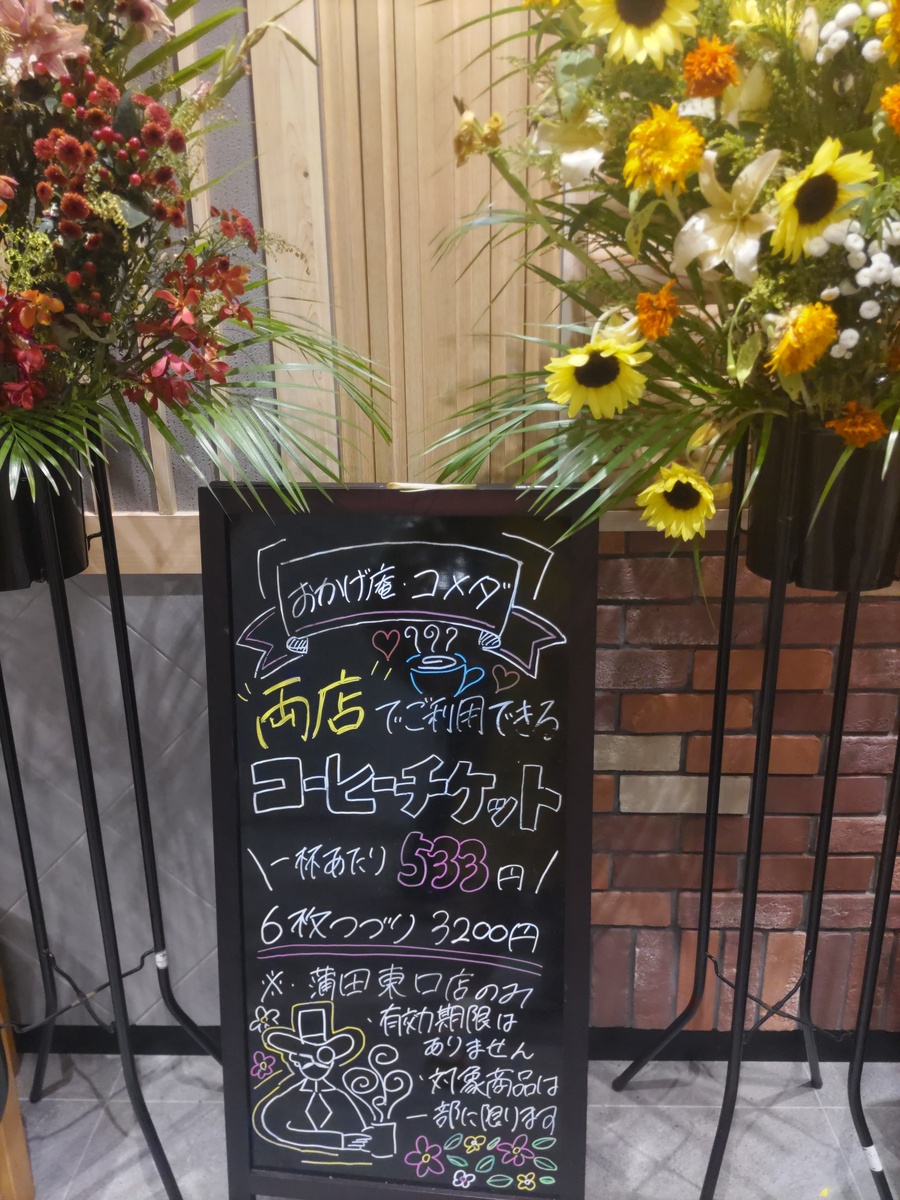 おかげ庵・コメダ
両店でご利用できる
コーヒーチケット
一杯あたり 533円
6枚つづり 3200円
※・蒲田東口店のみ
・有効期限は
ありません
・対象商品は
一部に限ります